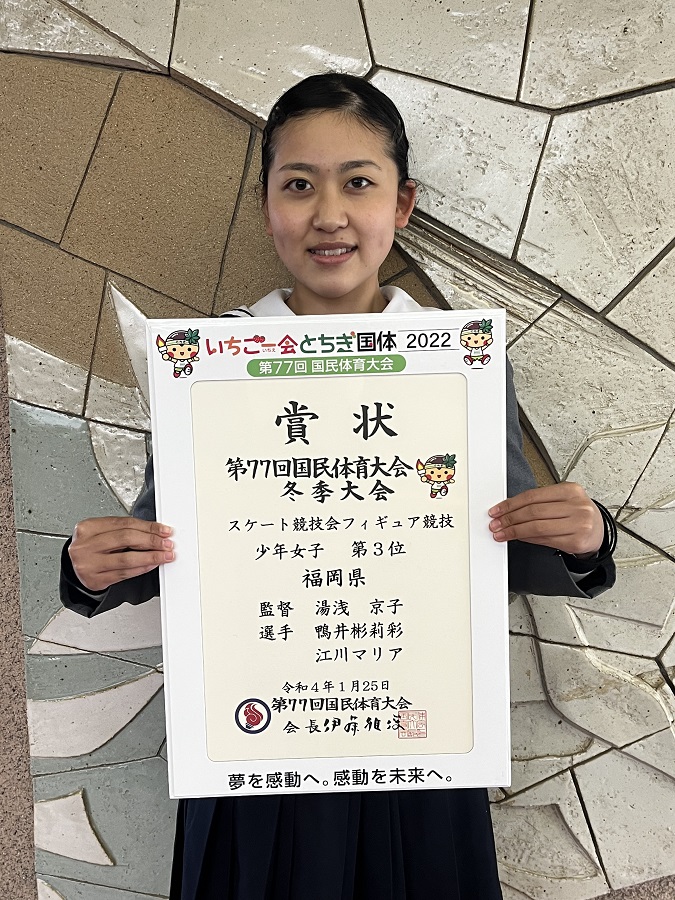 いちご一会とちぎ国体 2022
いちえ
第77回 国民体育大会
賞状
第77回国民体育大会
冬季大会
スケート競技会フィギュア競技
少年女子 第3位
福岡県
監督 湯浅 京子
選手 鴨井彬莉彩
江川マリア
令和4年1月25日
第77回国民体育大会
会長 伊藤雅俊
夢を感動へ。感動を未来へ。